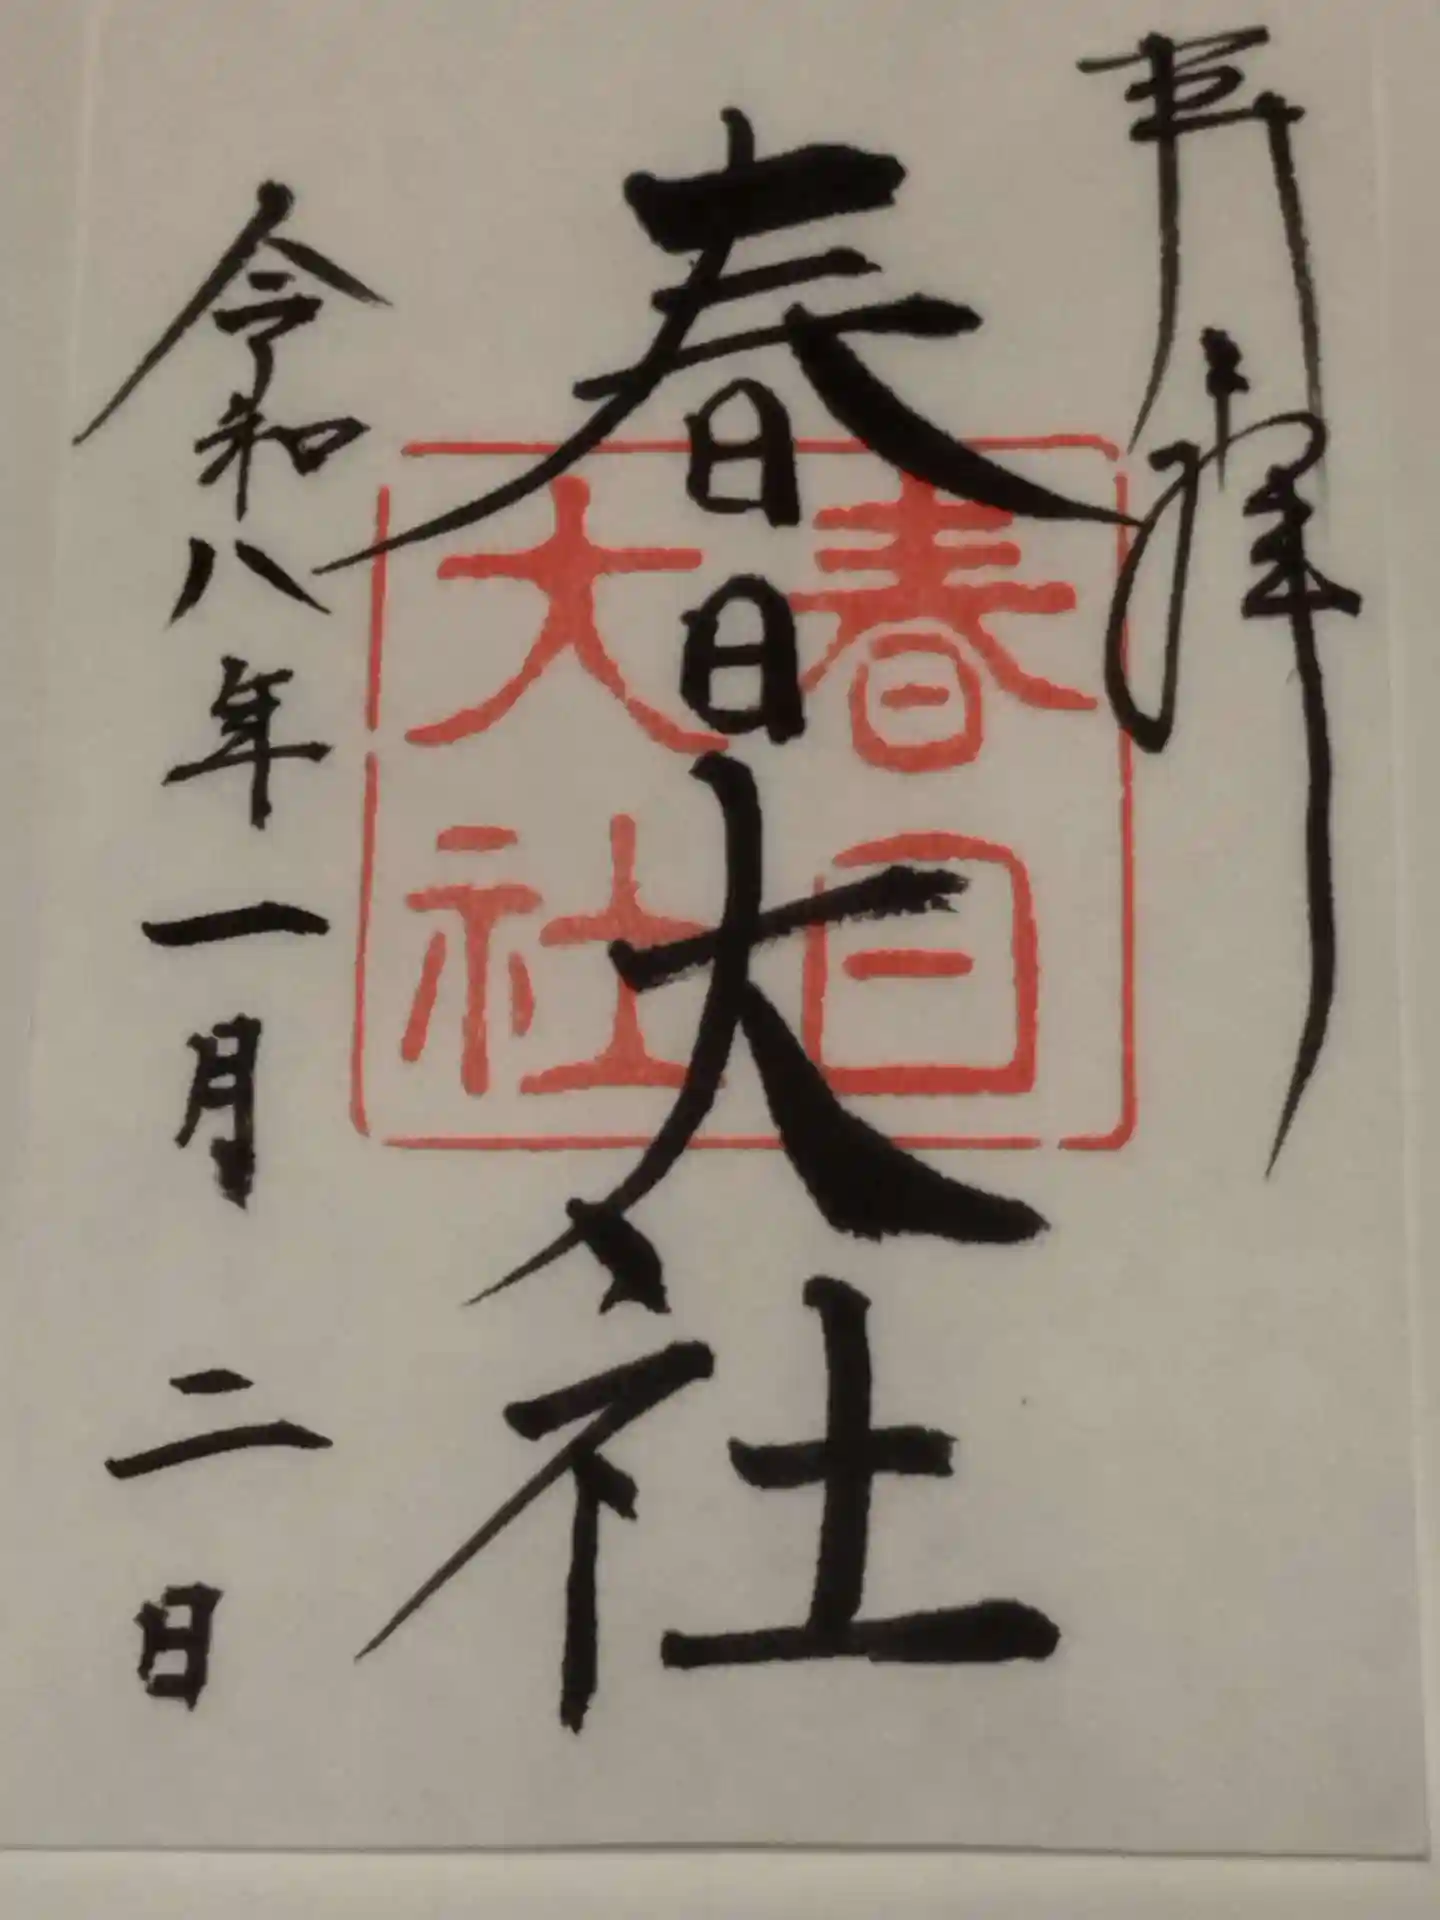 奉拝
春日大社
春日
大社
令和八年一月二日